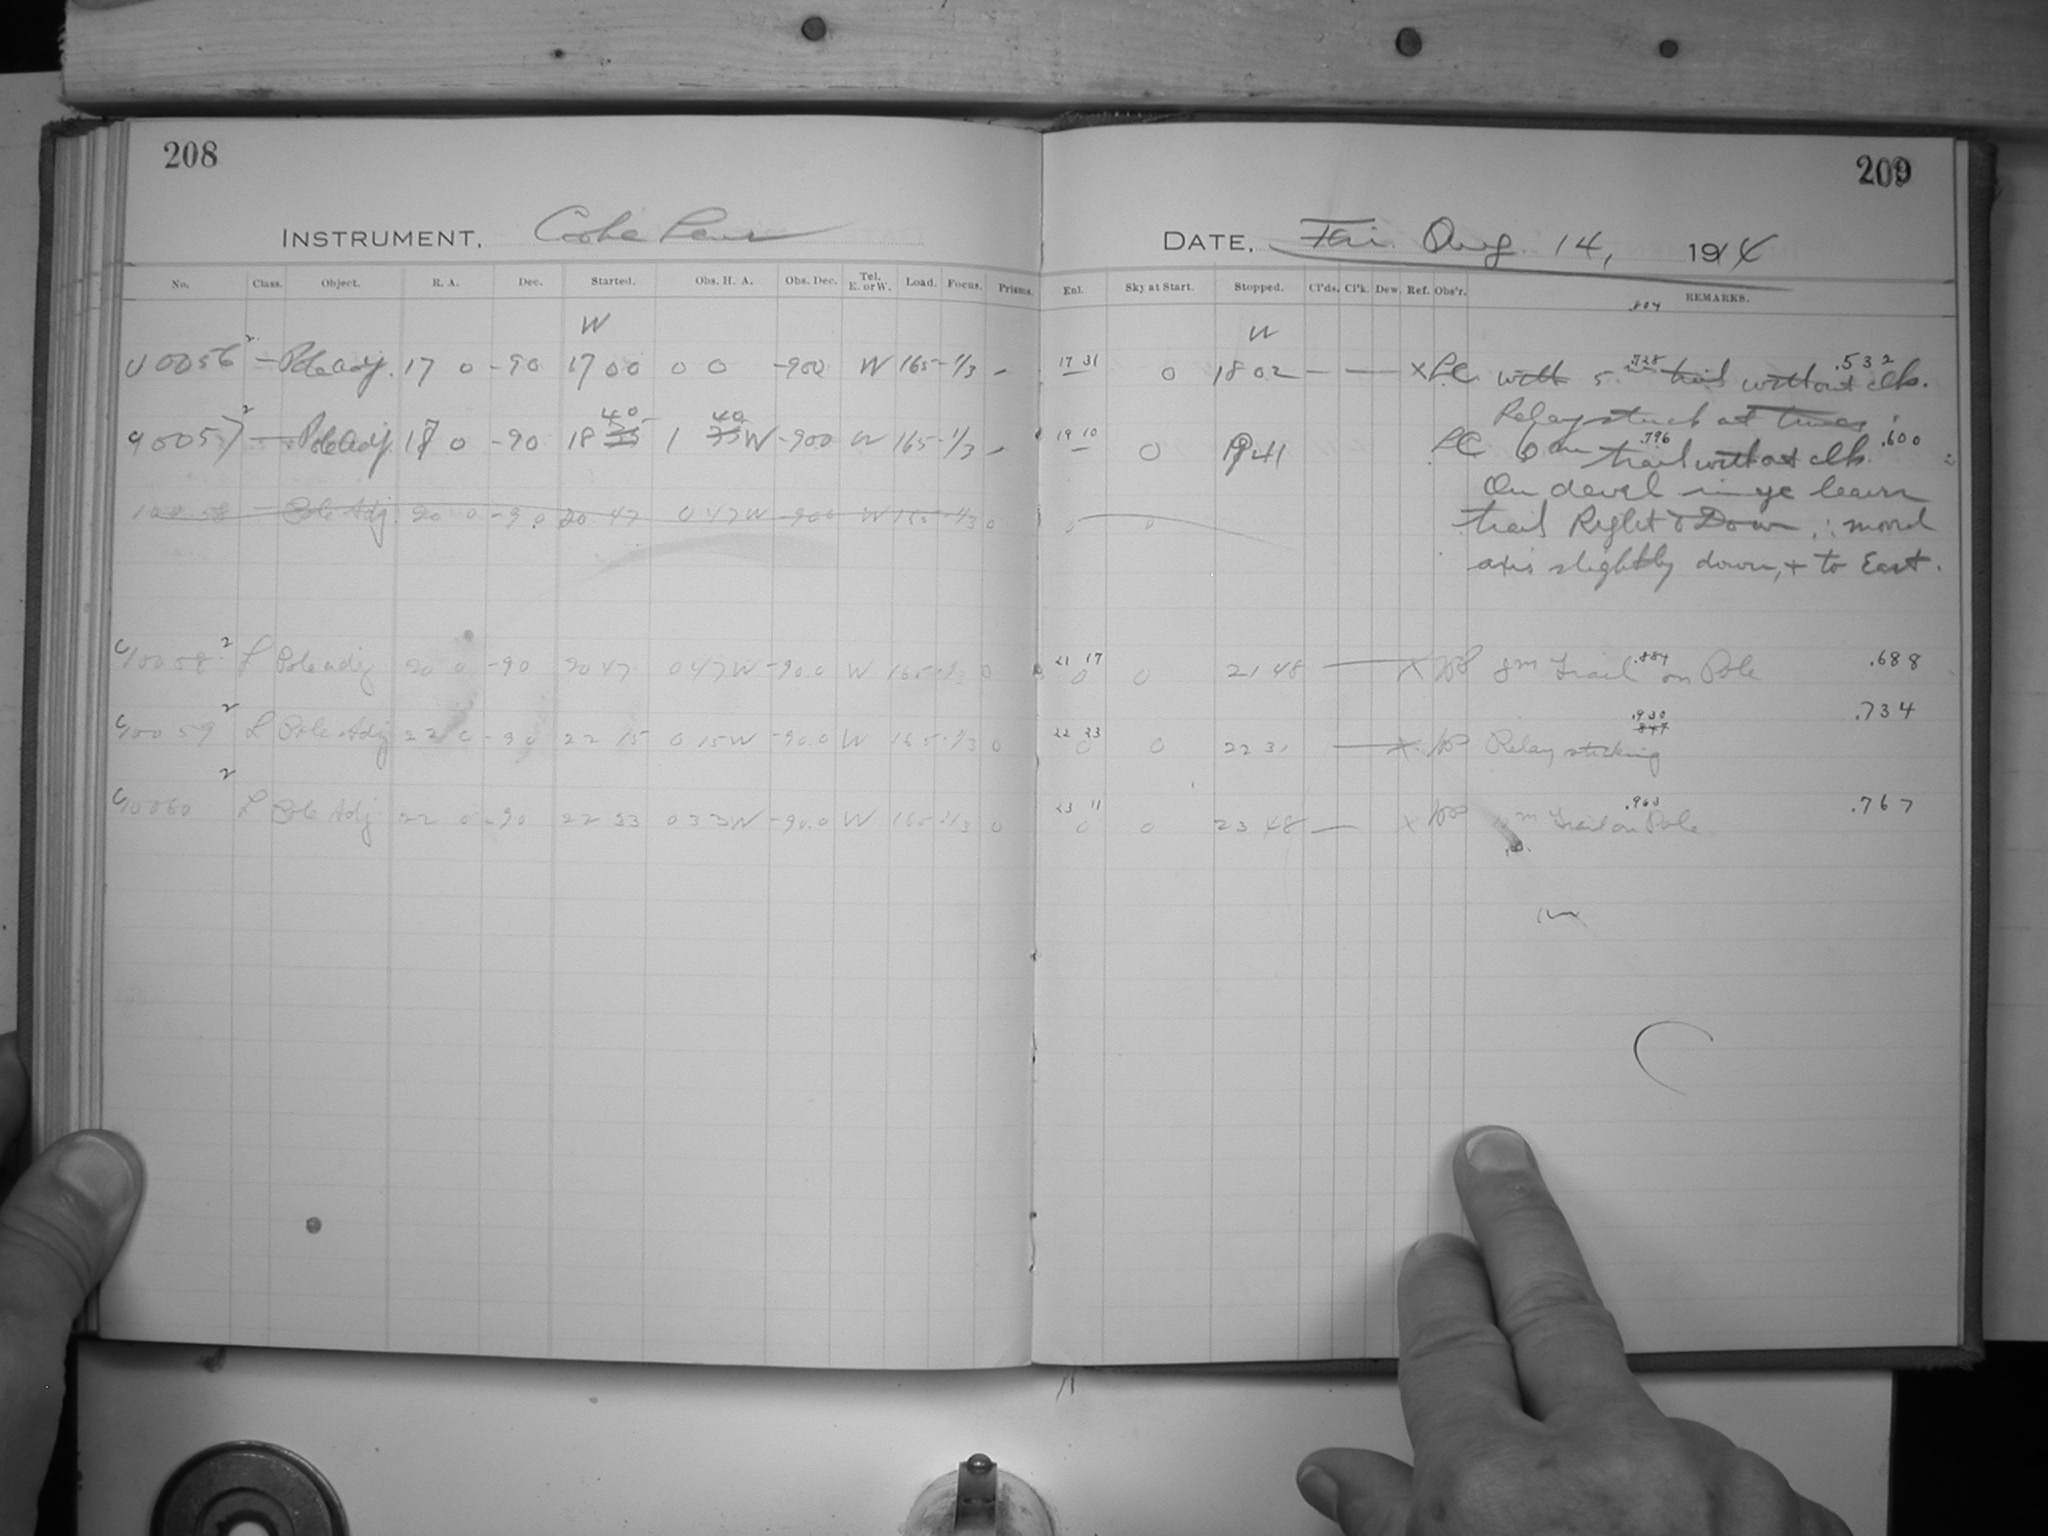 208
209
INSTRUMENT. Cooke Lens
DATE. Fri. Aug. 14, 1914
No. Class. Object. R. A. Dec. Started. Obs. H. A. Obs. Dec. Tel. E. or W. Load. Focus. Prisms. Enl. Sky at Start. Stopped. Cl'ds. Cl'k. Dew. Ref. Obs'r. REMARKS.
.804
W W
10056 2 — Pole Adj. 17 0 -90 17 00 0 0 -900 W 165 -1/3 - 17 31 0 18 02 — — × LC with 5 .728 trail without clk. .532
Relay stuck at times
10057 2 — Pole Adj. 18 0 -90 18 35 40 1 35 40 W -900 W 165 -1/3 - 19 10 0 19 41 LC 6 m .796 trail without clk. .600
10058 — Pole Adj. 20 0 -90 20 47 0 47 W -900 W 165 -1/3 0 0 0
On devel
trail Right & Down, ∴ moved
axis slightly down, + to East.
C10058 2 L Pole Adj 20 0 -90 20 47 0 47 W -90.0 W 165 -1/3 0 21 17 0 0 21 48 — × 8m Trail .884 on Pole .688
C10059 2 L Pole Adj 22 0 -90 22 15 0 15 W -90.0 W 165 -1/3 0 22 23 0 0 22 31 — × .930 .847 Relay sticking .734
C10060 2 L Pole Adj 22 0 -90 22 33 0 33 W -90.0 W 165 -1/3 0 23 11 0 0 23 48 — × m Trail on Pole .963 .767